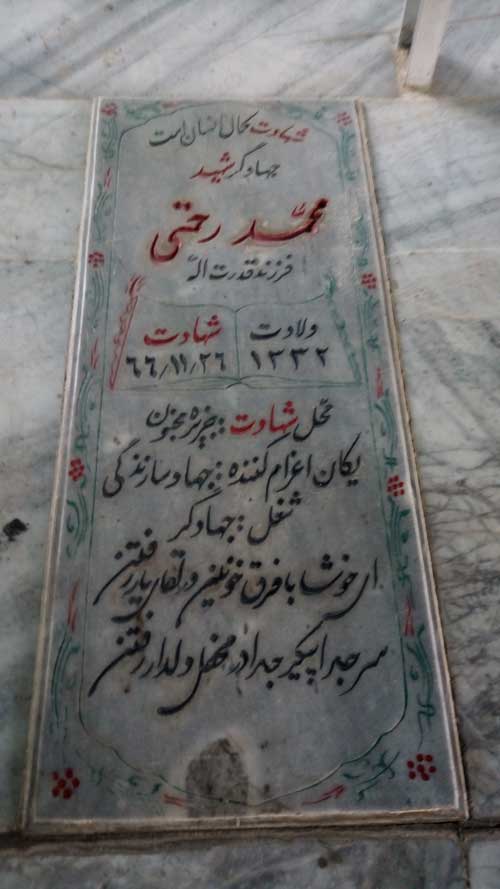 شهادت کمال انسان است
جهادگر شهید
محمّد رحمتی
فرزند قدرت اله
ولادت شهادت
۱۳۳۲ ۶۶/۱۱/۲۶
محل شهادت : جزیره مجنون
یگان اعزام کننده : جهاد سازندگی
شغل : جهادگر
ای خوشا با فرق خونین در لقای یار رفتن
سر جدا پیکر جدا در محفل دلدار رفتن